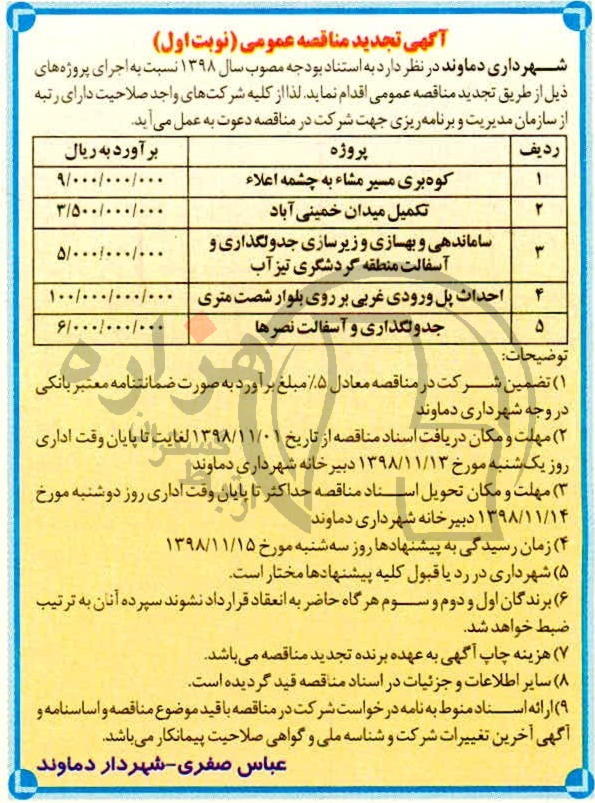 آگهی تجدید مناقصه عمومی (نوبت اول)
شهرداری دماوند در نظر دارد به استناد بودجه مصوب سال ۱۳۹۸ نسبت به اجرای پروژه‌های
ذیل از طریق تجدید مناقصه عمومی اقدام نماید. لذا از کلیه شرکت‌های واجد صلاحیت دارای رتبه
از سازمان مدیریت و برنامه‌ریزی جهت شرکت در مناقصه دعوت به عمل می‌آید.
ردیف پروژه برآورد به ریال
۱ کوه‌بری مسیر مشاء به چشمه اعلاء ۹/۰۰۰/۰۰۰/۰۰۰
۲ تکمیل میدان خمینی آباد ۳/۵۰۰/۰۰۰/۰۰۰
۳ ساماندهی و بهسازی و زیرسازی جدولگذاری و
آسفالت منطقه گردشگری تیزآب ۵/۰۰۰/۰۰۰/۰۰۰
۴ احداث پل ورودی غربی بر روی بلوار شصت متری ۱۰۰/۰۰۰/۰۰۰/۰۰۰
۵ جدولگذاری و آسفالت نصرها ۶/۰۰۰/۰۰۰/۰۰۰
توضیحات:
۱) تضمین شرکت در مناقصه معادل ۵٪ مبلغ برآورد به صورت ضمانتنامه معتبر بانکی
در وجه شهرداری دماوند
۲) مهلت و مکان دریافت اسناد مناقصه از تاریخ ۱۳۹۸/۱۱/۰۱ لغایت تا پایان وقت اداری
روز یک‌شنبه مورخ ۱۳۹۸/۱۱/۱۳ دبیرخانه شهرداری دماوند
۳) مهلت و مکان تحویل اسناد مناقصه حداکثر تا پایان وقت اداری روز دوشنبه مورخ
۱۳۹۸/۱۱/۱۴ دبیرخانه شهرداری دماوند
۴) زمان رسیدگی به پیشنهادها روز سه‌شنبه مورخ ۱۳۹۸/۱۱/۱۵
۵) شهرداری در رد یا قبول کلیه پیشنهادها مختار است.
۶) برندگان اول و دوم و سوم هرگاه حاضر به انعقاد قرارداد نشوند سپرده آنان به ترتیب
ضبط خواهد شد.
۷) هزینه چاپ آگهی به عهده برنده تجدید مناقصه می‌باشد.
۸) سایر اطلاعات و جزئیات در اسناد مناقصه قید گردیده است.
۹) ارائه اسناد منوط به نامه درخواست شرکت در مناقصه با قید موضوع مناقصه و اساسنامه و
آگهی آخرین تغییرات شرکت و شناسه ملی و گواهی صلاحیت پیمانکار می‌باشد.
عباس صفری-شهردار دماوند
هزاره